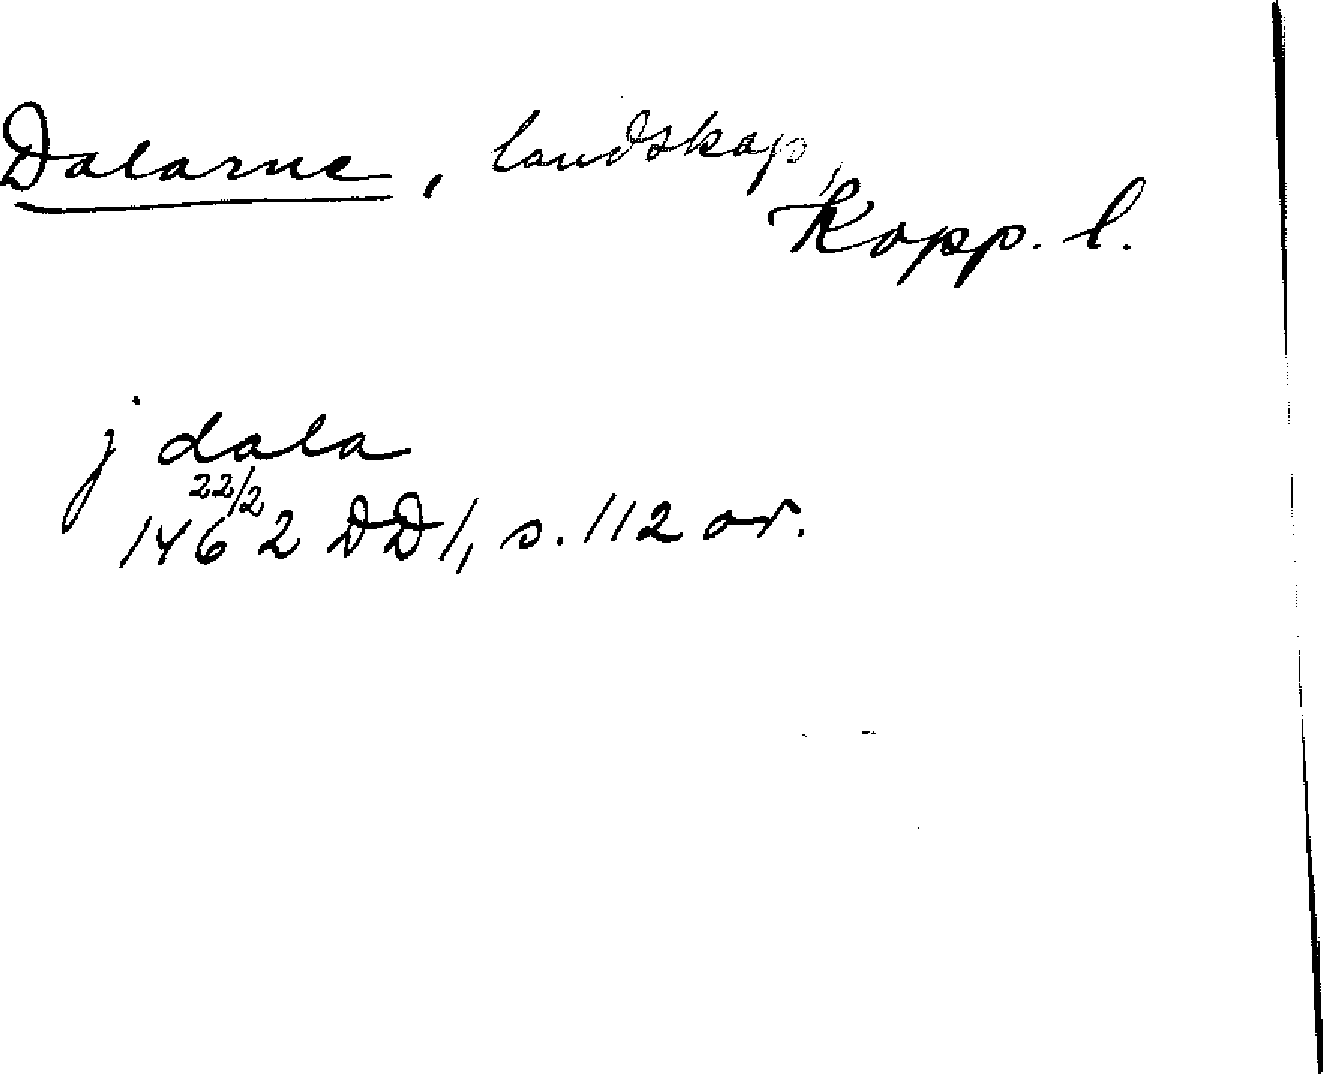 Dalarne, landskap,
Kopp. l.
j dala
22/2
1462 DD 1, s. 112 or.